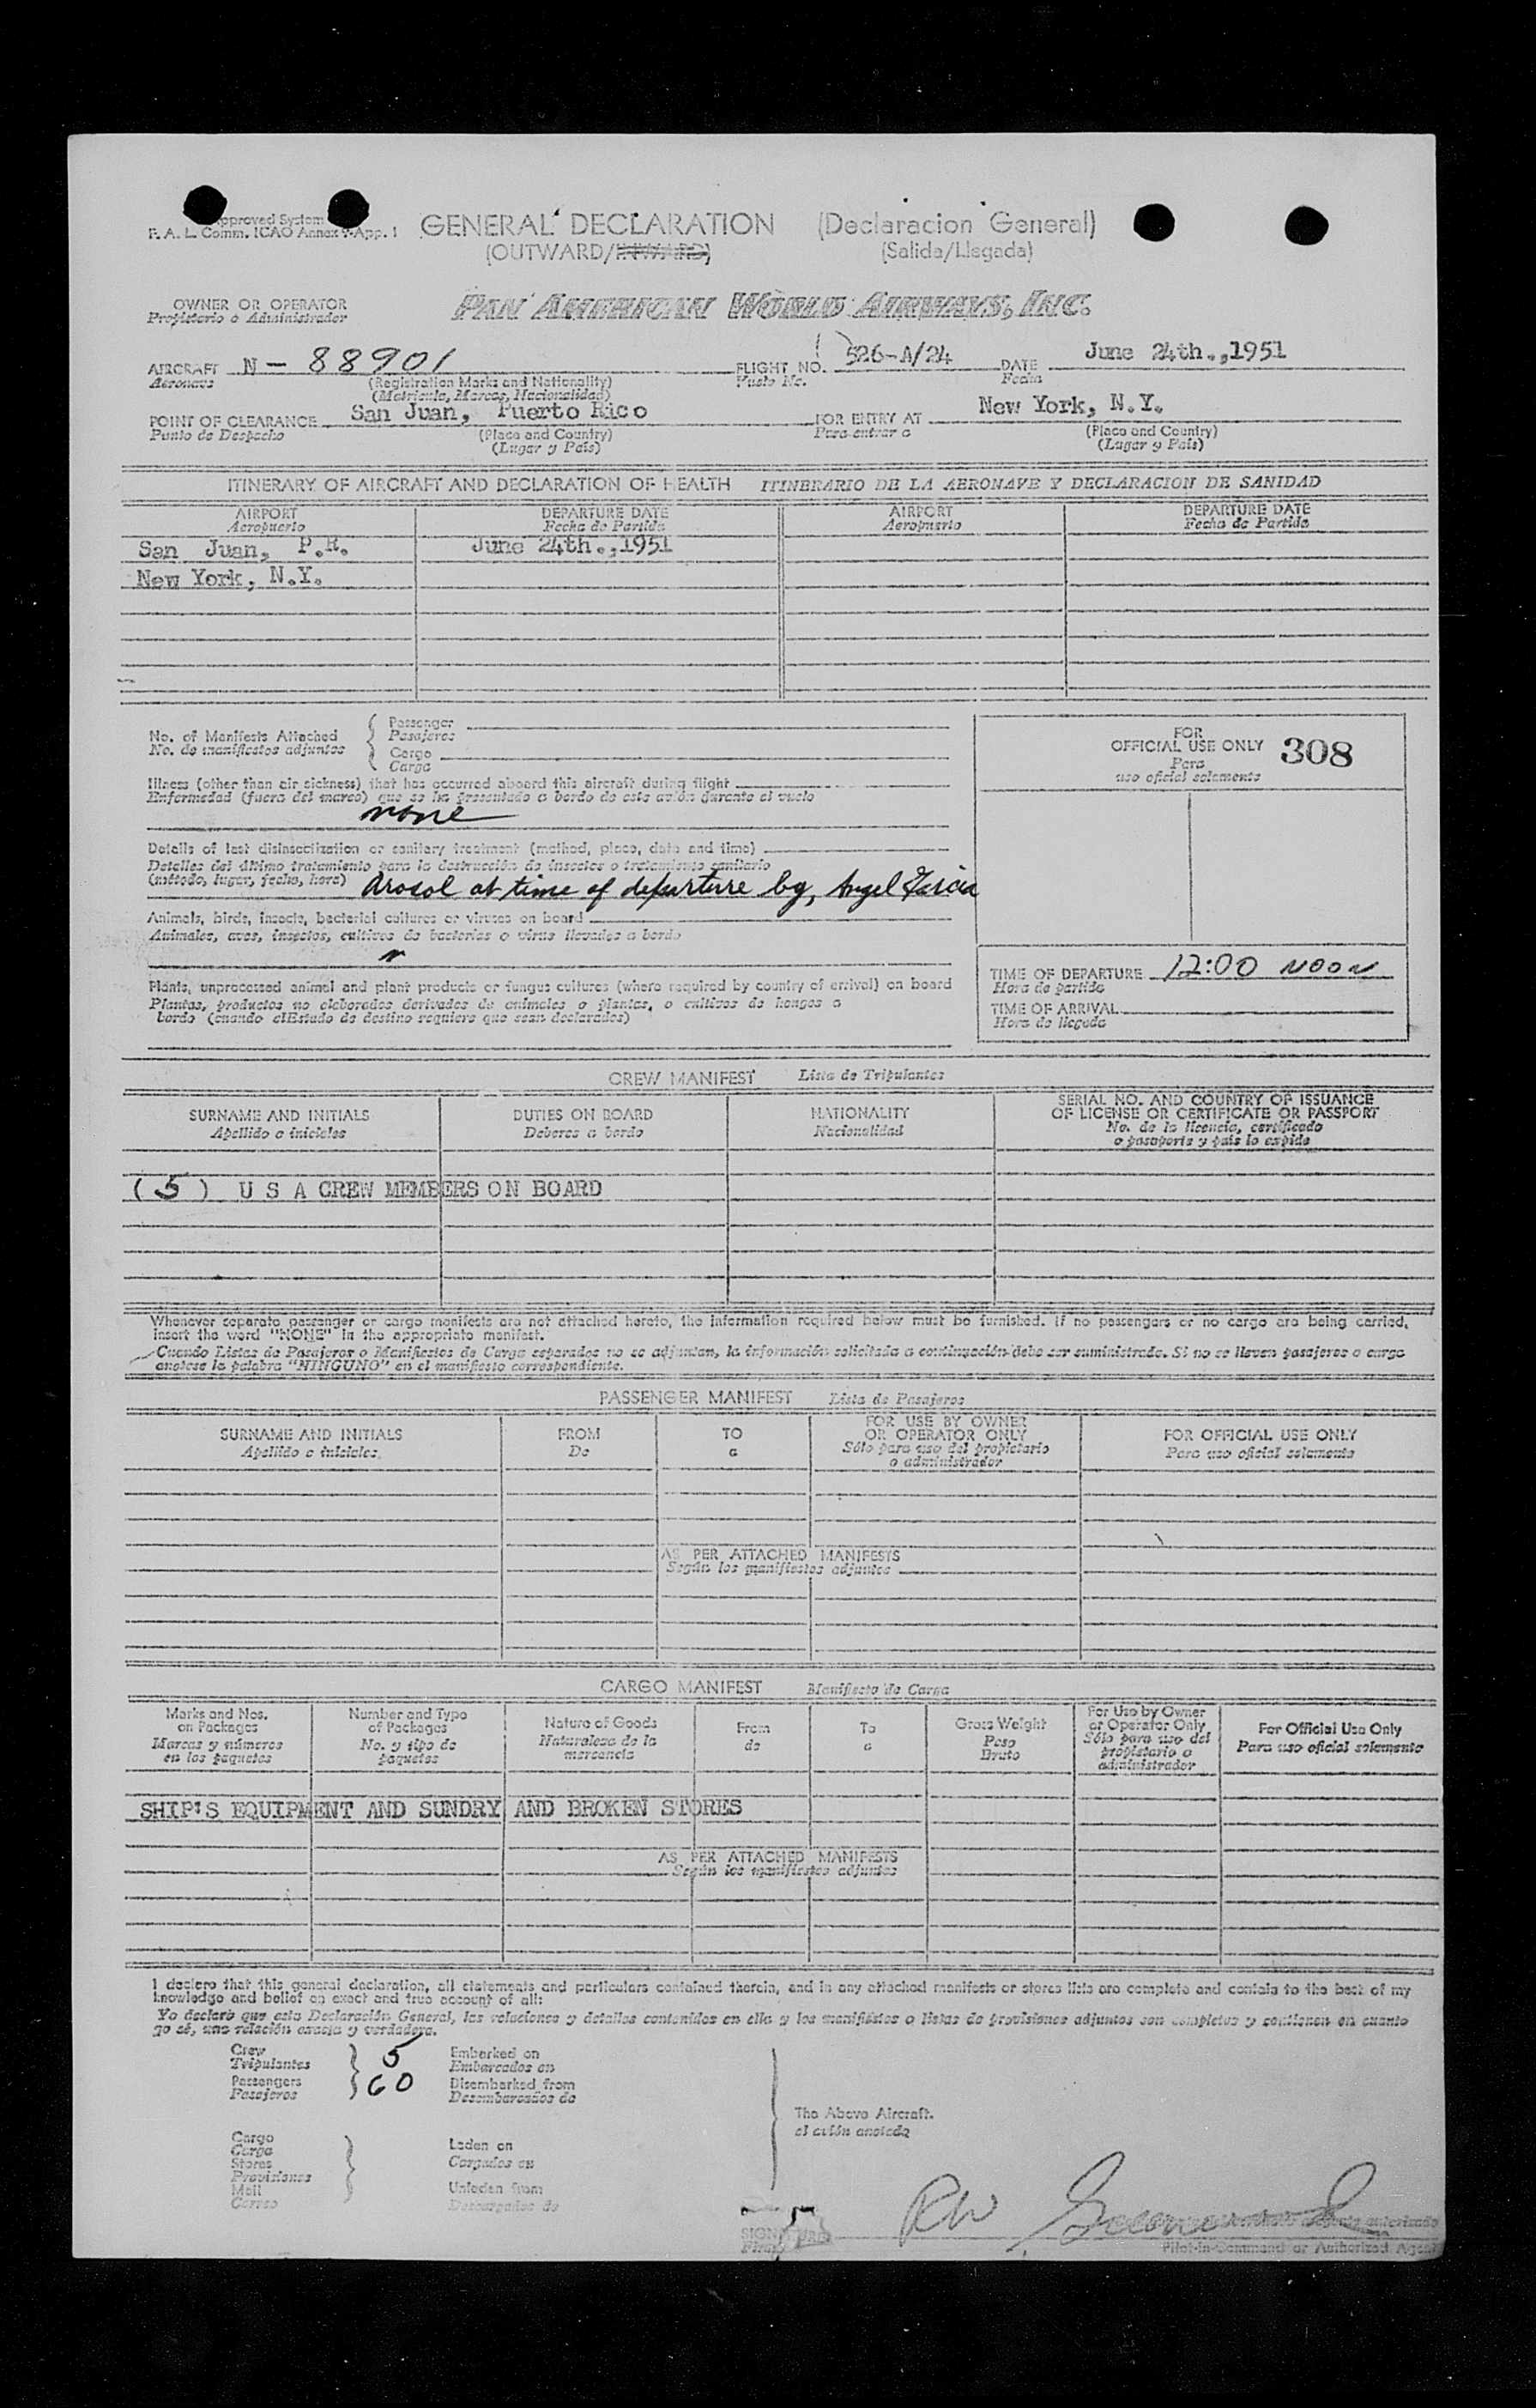 Approved System
F. A. L. Comm. ICAO Annex 9-App. 1
GENERAL DECLARATION (Declaracion General)
(OUTWARD/INWARD) (Salida/Llegada)
OWNER OR OPERATOR
Propietario o Administrador
PAN AMERICAN WORLD AIRWAYS, INC.
AIRCRAFT N-88901 FLIGHT NO. 526-A/24 DATE June 24th.,1951
Aeronave (Registration Marks and Nationality) Vuelo No. Fecha
(Matricula, Marcas, Nacionalidad)
POINT OF CLEARANCE San Juan, Puerto Rico FOR ENTRY AT New York, N.Y.
Punto de Despacho (Place and Country) Para entrar a (Place and Country)
(Lugar y País) (Lugar y País)
ITINERARY OF AIRCRAFT AND DECLARATION OF HEALTH ITINERARIO DE LA AERONAVE Y DECLARACION DE SANIDAD
AIRPORT DEPARTURE DATE AIRPORT DEPARTURE DATE
Aeropuerto Fecha de Partida Aeropuerto Fecha de Partida
San Juan, P.R. June 24th.,1951
New York, N.Y.
No. of Manifests Attached
No. de manifiestos adjuntos
Passenger
Pasajeros
Cargo
Carga
FOR
OFFICIAL USE ONLY 308
Para
uso oficial solamente
Illness (other than air sickness) that has occurred aboard this aircraft during flight
Enfermedad (fuera del mareo) que se ha presentado a bordo de este avión durante el vuelo
none
Details of last disinsectization or sanitary treatment (method, place, date and time)
Detalles del último tratamiento para la destrucción de insectos o tratamiento sanitario
(método, lugar, fecha, hora) Arosol at time of departure by, Angel Garcia
Animals, birds, insects, bacterial cultures or viruses on board
Animales, aves, insectos, cultivos de bacterias o virus llevados a bordo
Plants, unprocessed animal and plant products or fungus cultures (where required by country of arrival) on board
Plantas, productos no elaborados derivados de animales o plantas, o cultivos de hongos a
bordo (cuando elEstado de destino requiere que sean declarados)
TIME OF DEPARTURE 12:00 NOON
Hora de partida
TIME OF ARRIVAL
Hora de llegada
CREW MANIFEST Lista de Tripulantes
SURNAME AND INITIALS DUTIES ON BOARD NATIONALITY SERIAL NO. AND COUNTRY OF ISSUANCE
OF LICENSE OR CERTIFICATE OR PASSPORT
Apellido o iniciales Deberes a bordo Nacionalidad No. de la licencia, certificado
o pasaporte y país lo expide
(5) U S A CREW MEMBERS ON BOARD
Whenever separate passenger or cargo manifests are not attached hereto, the information required below must be furnished. If no passengers or no cargo are being carried,
insert the word "NONE" in the appropriate manifest.
Cuando Listas de Pasajeros o Manifiestos de Carga separados no se adjuntan, la información solicitada a continuación debe ser suministrada. Si no se llevan pasajeros o carga
anótese la palabra "NINGUNO" en el manifiesto correspondiente.
PASSENGER MANIFEST Lista de Pasajeros
SURNAME AND INITIALS FROM TO FOR USE BY OWNER
OR OPERATOR ONLY FOR OFFICIAL USE ONLY
Apellido o iniciales De a Sólo para uso del propietario
o administrador Para uso oficial solamente
AS PER ATTACHED MANIFESTS
Según los manifiestos adjuntos
CARGO MANIFEST Manifiesto de Carga
Marks and Nos.
on Packages
Marcas y números
en los paquetes
Number and Type
of Packages
No. y tipo de
paquetes
Nature of Goods
Naturaleza de la
mercancía
From
de
To
a
Gross Weight
Peso
Bruto
For Use by Owner
or Operator Only
Sólo para uso del
propietario o
administrador
For Official Use Only
Para uso oficial solamente
SHIP'S EQUIPMENT AND SUNDRY AND BROKEN STORES
AS PER ATTACHED MANIFESTS
Según los manifiestos adjuntos
I declare that this general declaration, all statements and particulars contained therein, and in any attached manifests or stores lists are complete and contain to the best of my
knowledge and belief an exact and true account of all:
Yo declaro que esta Declaración General, las relaciones y detalles contenidos en ella y los manifiestos o listas de provisiones adjuntos son completos y contienen en cuanto
yo sé, una relación exacta y verdadera.
Crew 5 Embarked on
Tripulantes Embarcados en
Passengers 60 Disembarked from
Pasajeros Desembarcados de
The Above Aircraft.
el avión anotado
Cargo
Carga
Stores
Provisiones
Mail
Correo
Laden on
Cargados en
Unladen from
Descargados de
SIGNATURE RW
Firma
Pilot-in-Command or Authorized Agent